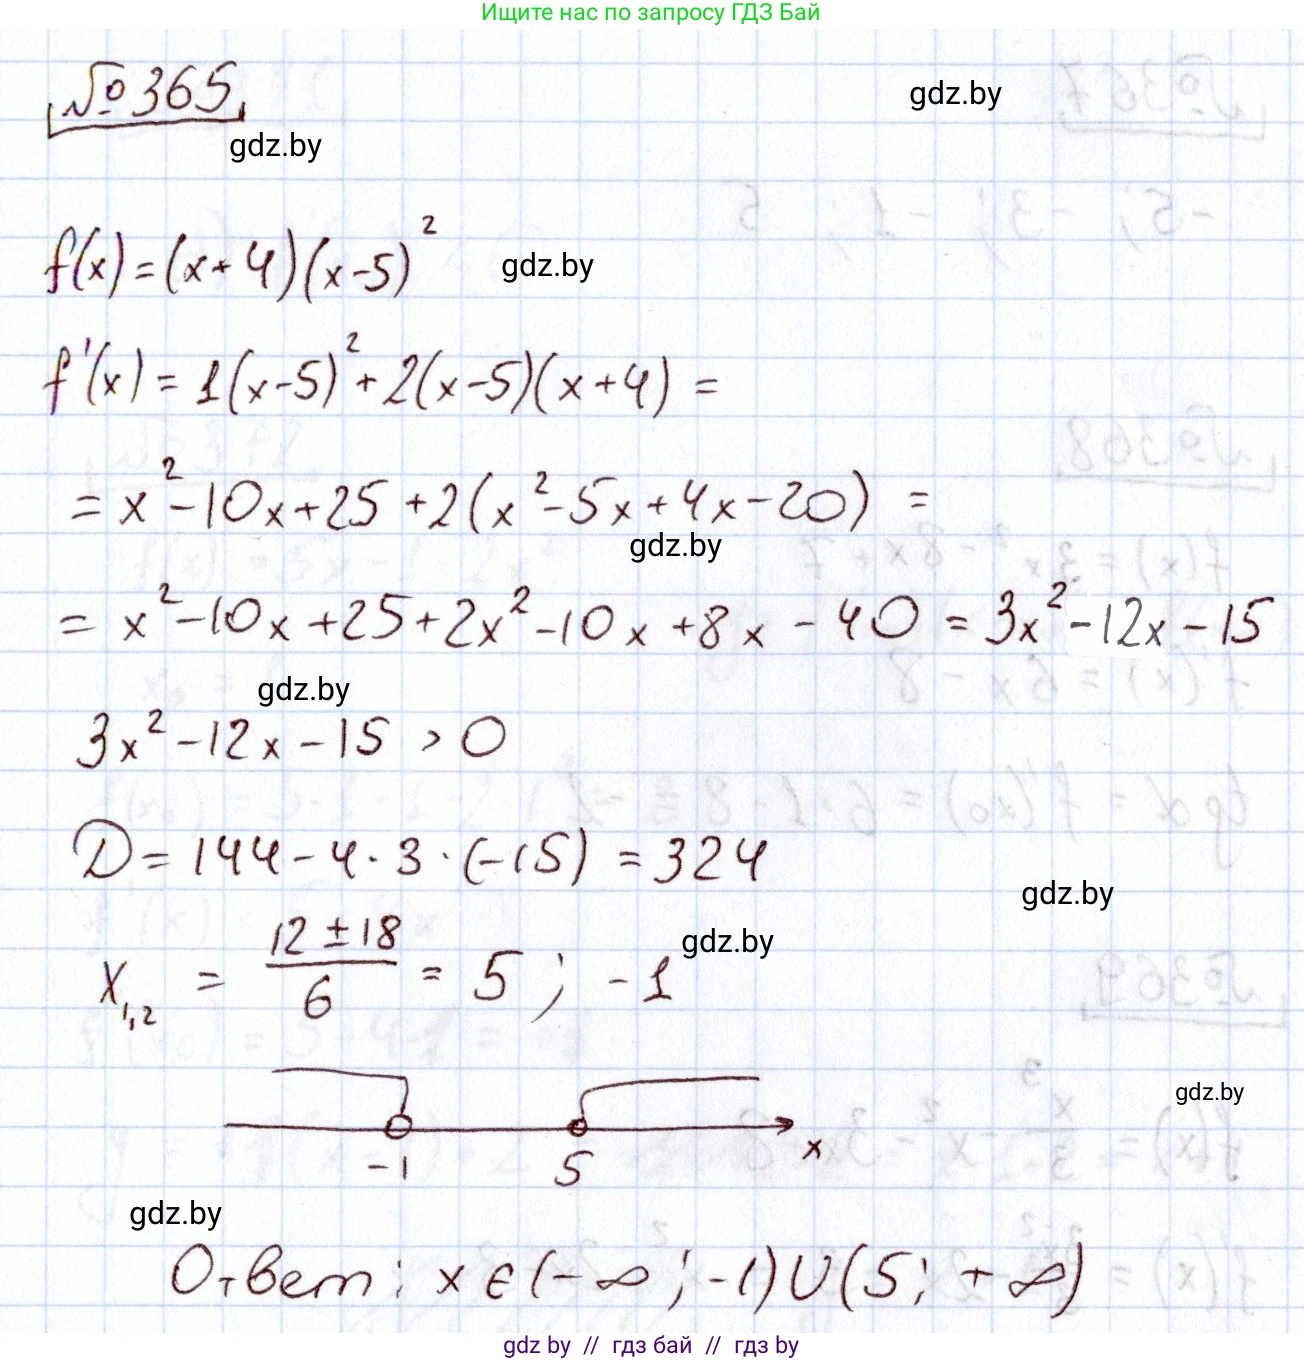 Ищите нас по запросу ГДЗ Бай
№365
gdz.by
gdz.by
f(x) = (x+4)(x-5)²
gdz.by
f'(x) = 1(x-5)² + 2(x-5)(x+4) =
= x² - 10x + 25 + 2(x² - 5x + 4x - 20) =
gdz.by
= x² - 10x + 25 + 2x² - 10x + 8x - 40 = 3x² - 12x - 15
gdz.by
3x² - 12x - 15 > 0
D = 144 - 4 · 3 · (-15) = 324
gdz.by
x₁,₂ = (12 ± 18)/6 = 5; -1
gdz.by
gdz.by
-1 5 x
gdz.by
Ответ: x ∈ (-∞; -1) ∪ (5; +∞)
gdz by // гдз бай // гдз by